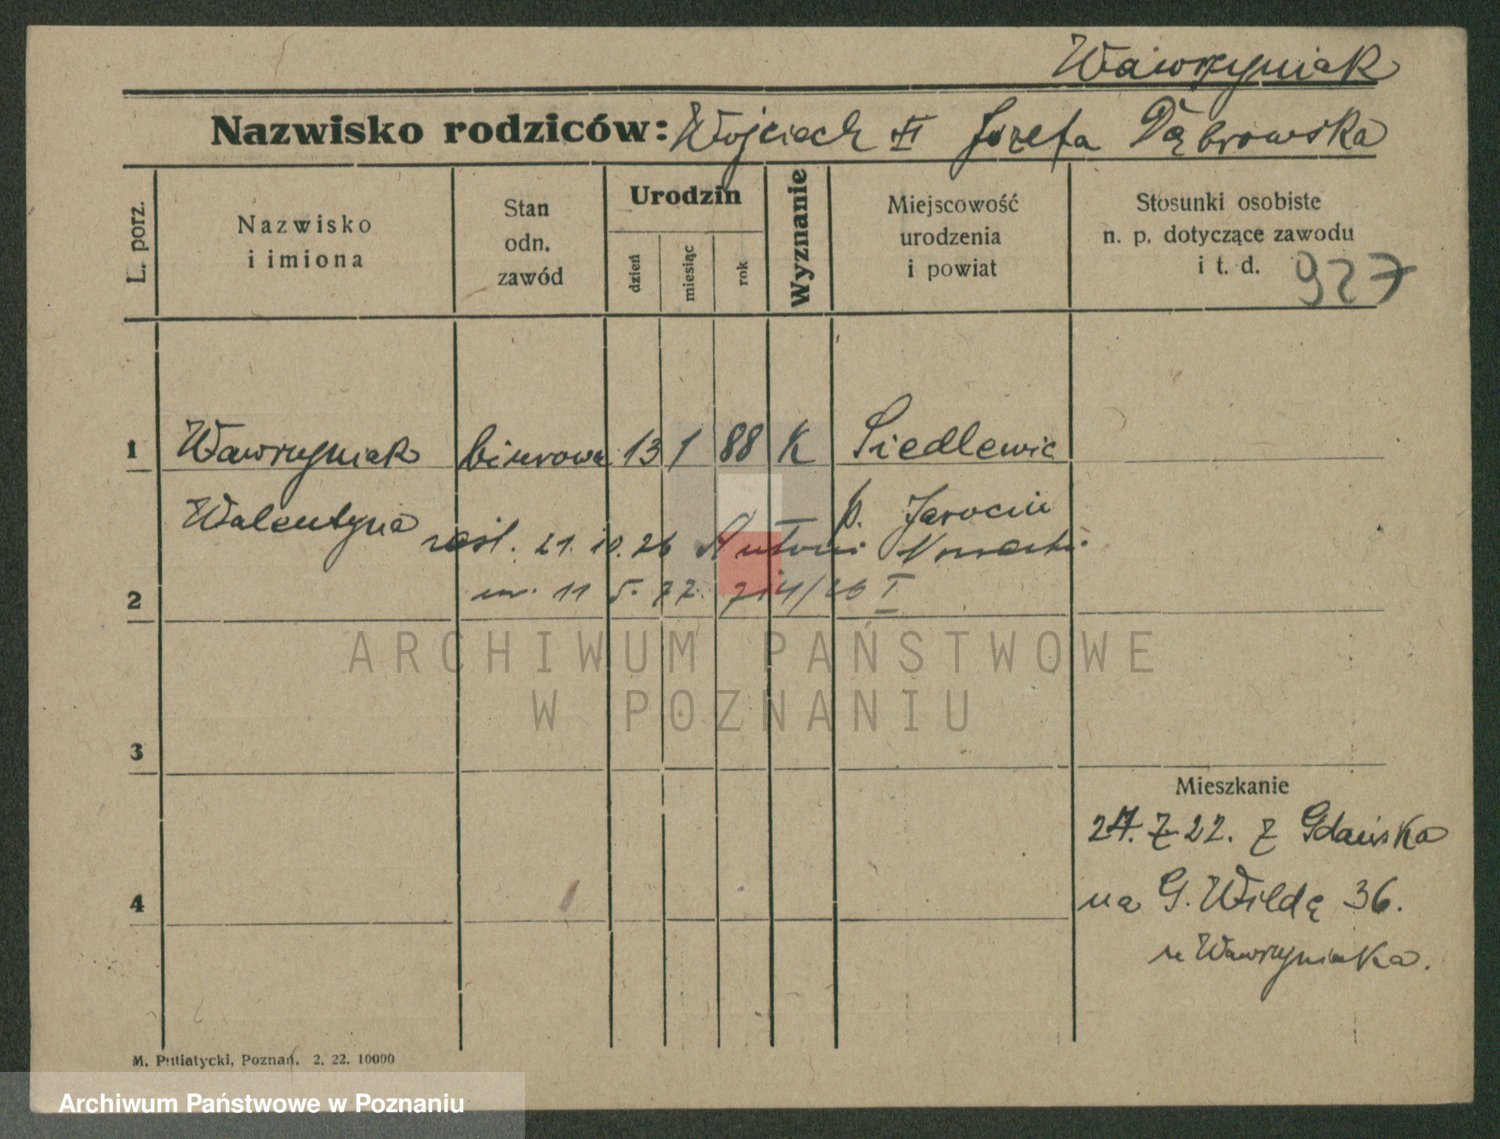 Wawrzyniak
Nazwisko rodziców: Wojciech Józefa Dąbrowska
L. porz.
Nazwisko
i imiona
Stan
odn.
zawód
Urodzin
dzień
miesiąc
rok
Wyznanie
Miejscowość
urodzenia
i powiat
Stosunki osobiste
n. p. dotyczące zawodu
i t. d. 927
1 Wawrzyniak biurowa 13 1 88 K Siedlewic
Walentyna p. Jarocin
21. 10. 26 Antoni Nowacki
2 11 5. 714/26 I
ARCHIWUM PAŃSTWOWE
W POZNANIU
3
Mieszkanie
22. Z Gdańska
4 na G. Wildę 36.
u Wawrzyniaka.
M. Putiatycki, Poznań. 2. 22. 10000
Archiwum Państwowe w Poznaniu